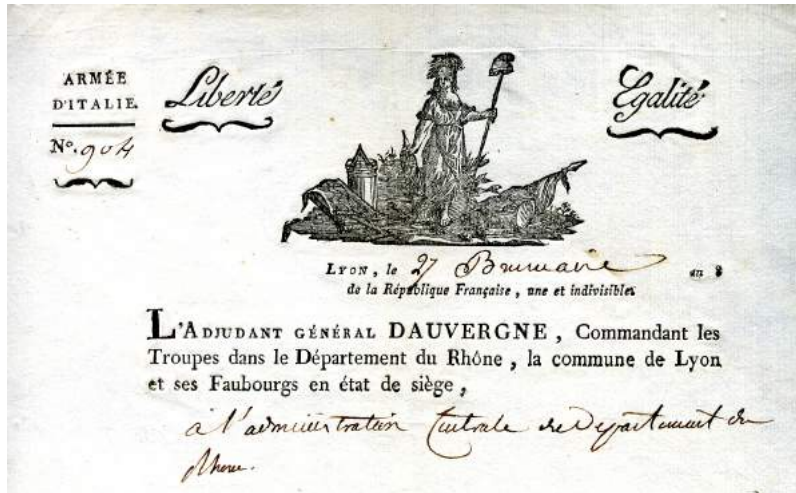 ARMÉE
D'ITALIE.
Nº. 904
Liberté
Egalité
LYON, le 27 Brumaire an 8
de la République Française, une et indivisible.
L'ADJUDANT GÉNÉRAL DAUVERGNE, Commandant les
Troupes dans le Département du Rhône, la commune de Lyon
et ses Faubourgs en état de siège,
à l'administration Centrale du Département du
Rhone.